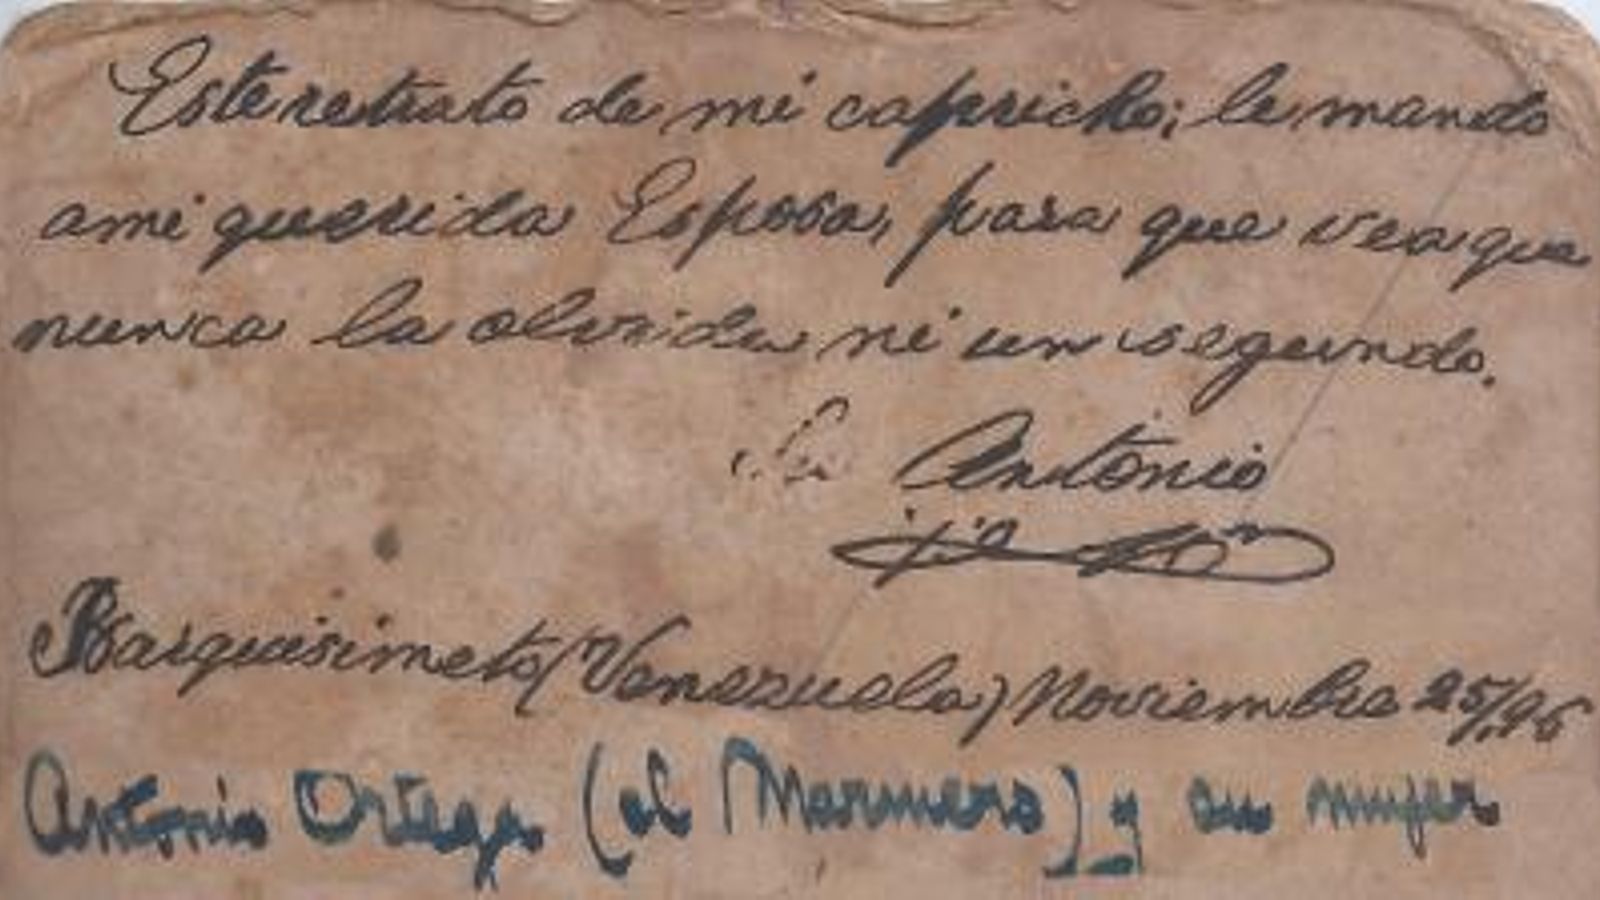 Este retrato de mi capricho; le mando
ami querida Esposa, para que vea que
nunca la olvida ni un segundo.
Su Antonio
Barquisimeto (Venezuela) Noviembre 25/96
Antonio Ortega (el Marmero) y su mujer